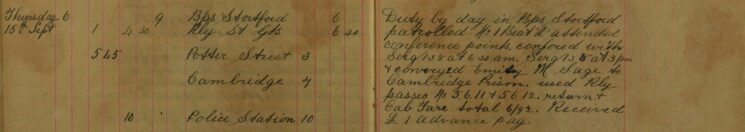 Thursday 6 9 Bps Stortford 6
15th Sept 1 4 30 Rly St Gks 6 30
5 45 Potter Street 3
Cambridge 7
10 Police Station 10
Duty by day in Bps Stortford
patrolled No 1 Beat & attended
conference points, confered with
Serg 138 at 6 30 am. Serg 13 at 3 pm
& conveyed Emily M Sage to
Cambridge Prison, used Rly
passes No 5611 & 5612. return &
Cab Fare total 6/9½. Received
£ 1 Advance Pay.